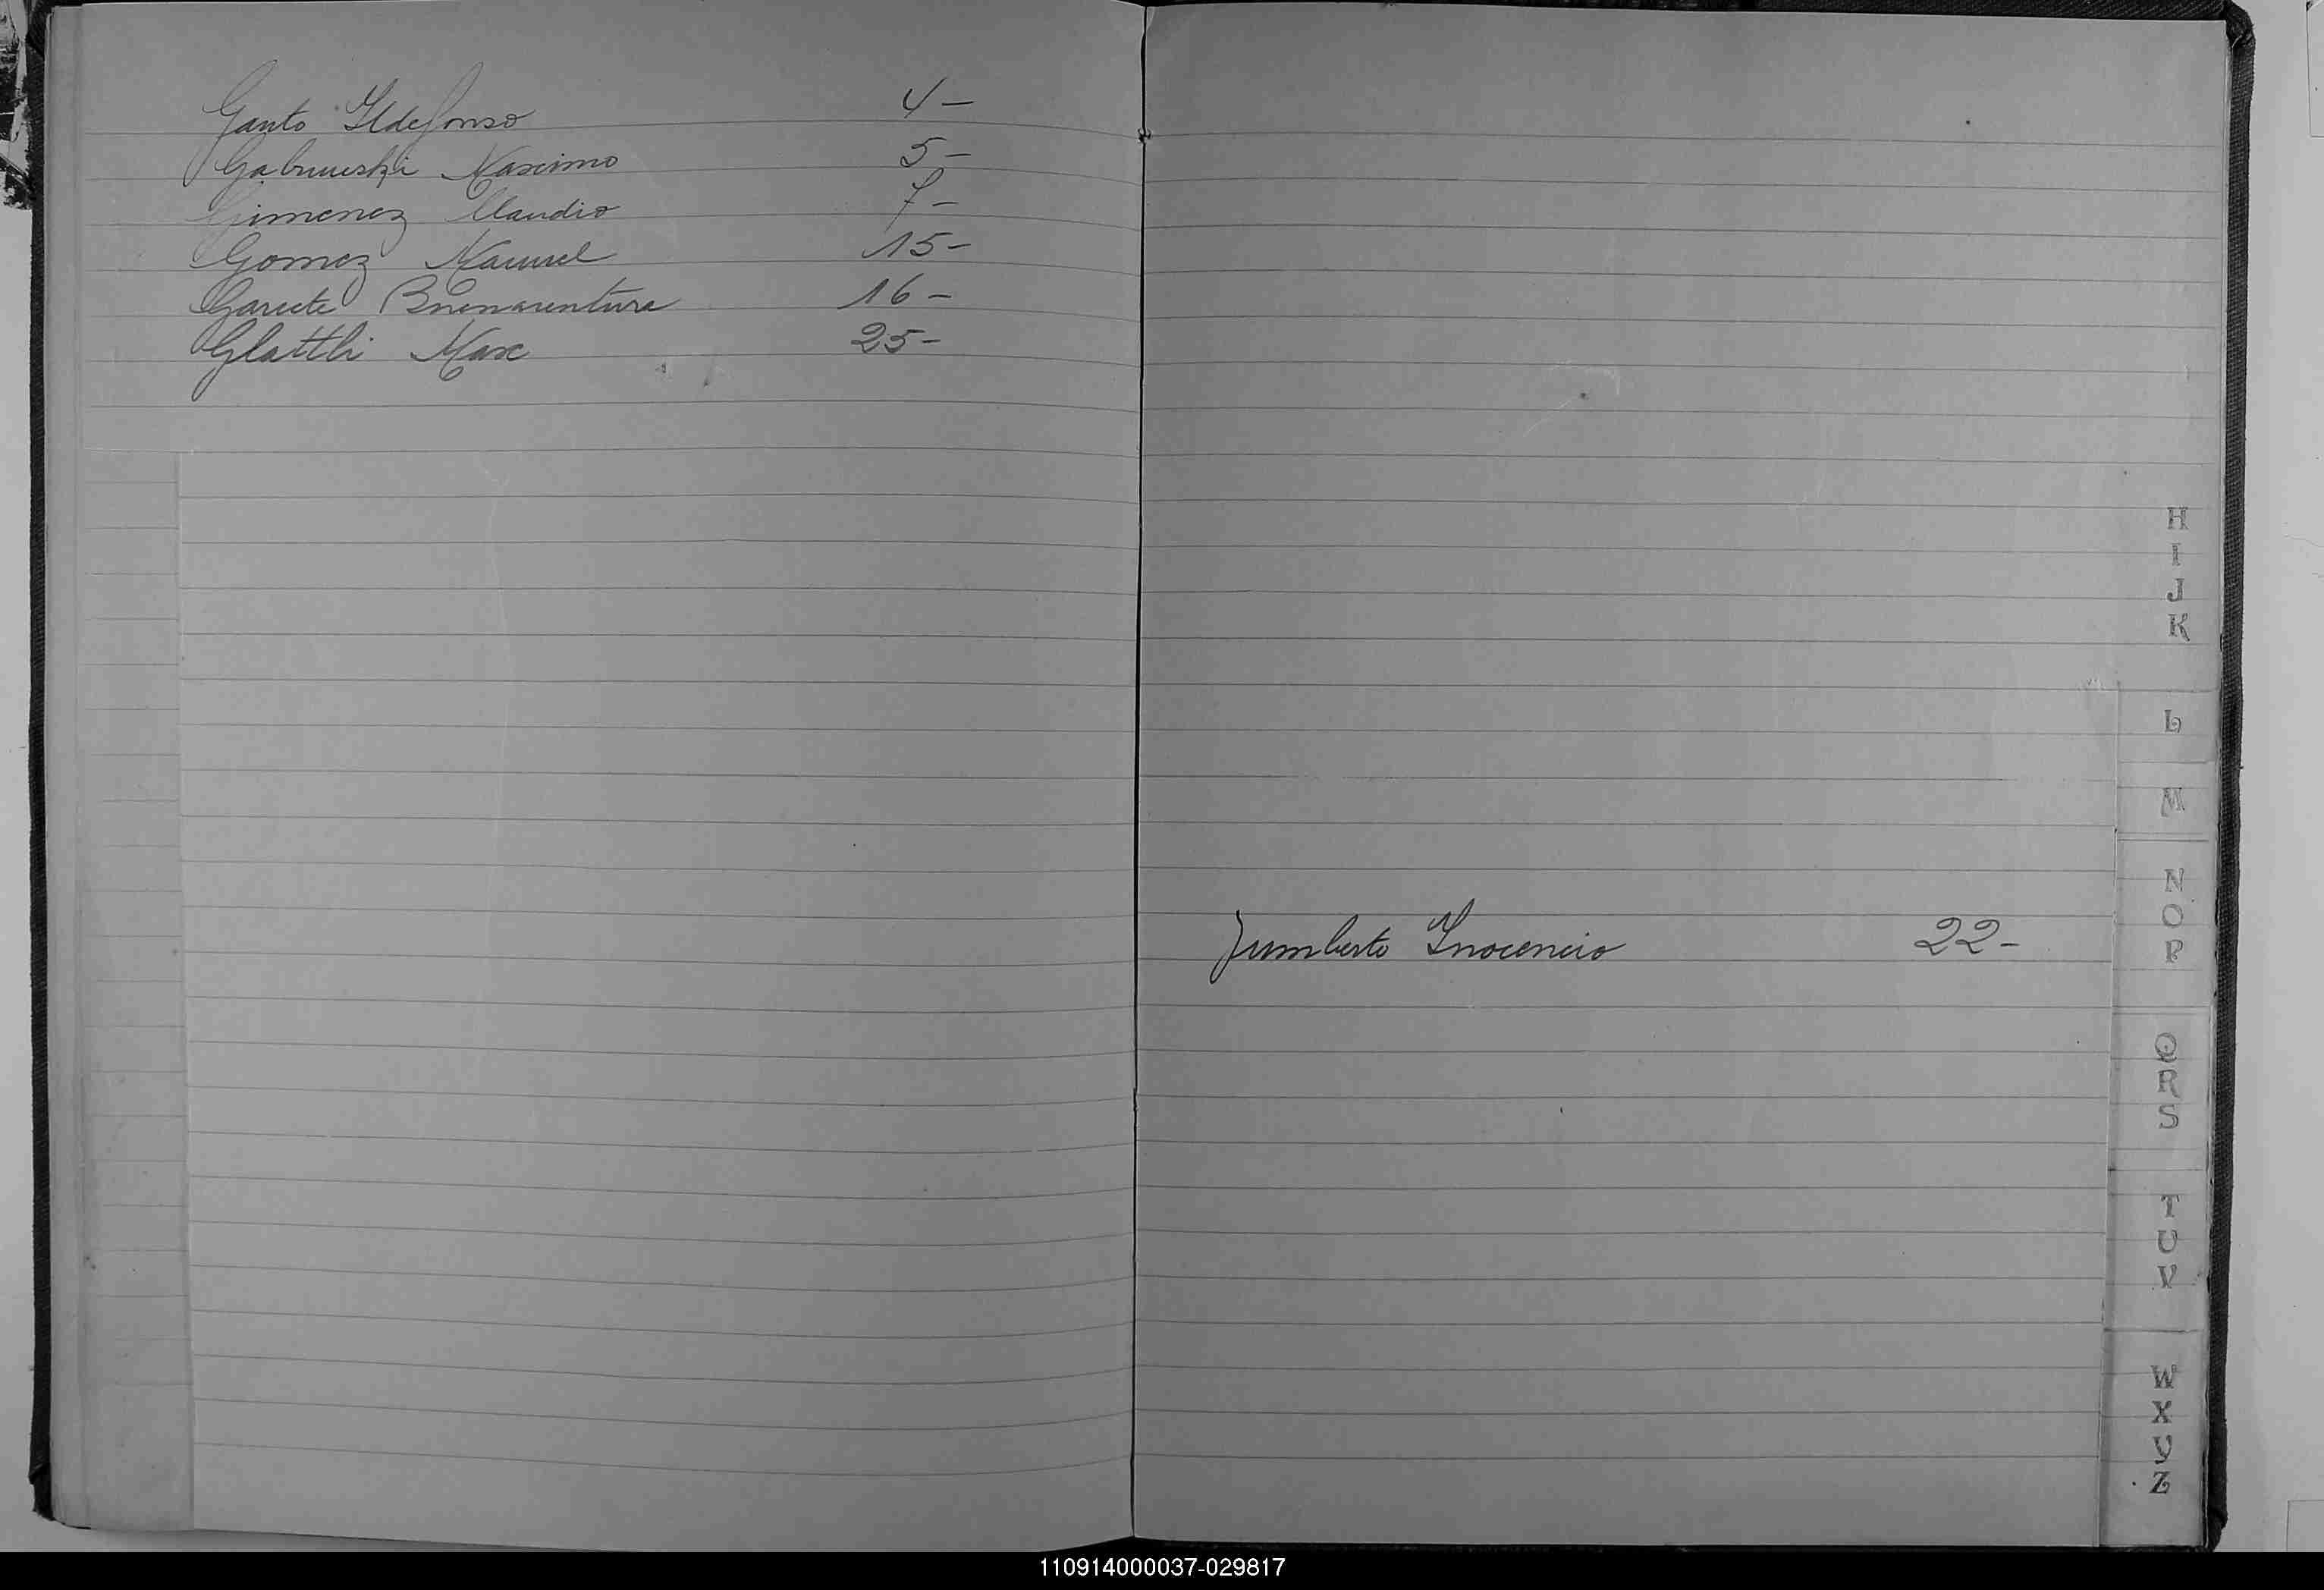 Ganto Ildefonso 4-
Máximo 5-
Gimenez Claudio 7-
Gomez Manuel 15-
Garcete Buenaventura 16-
Glattli Max 25-
H
I
J
K
L
M
N
O
P
Jumberto Inocencio 22-
Q
R
S
T
U
V
W
X
Y
Z
110914000037-029817